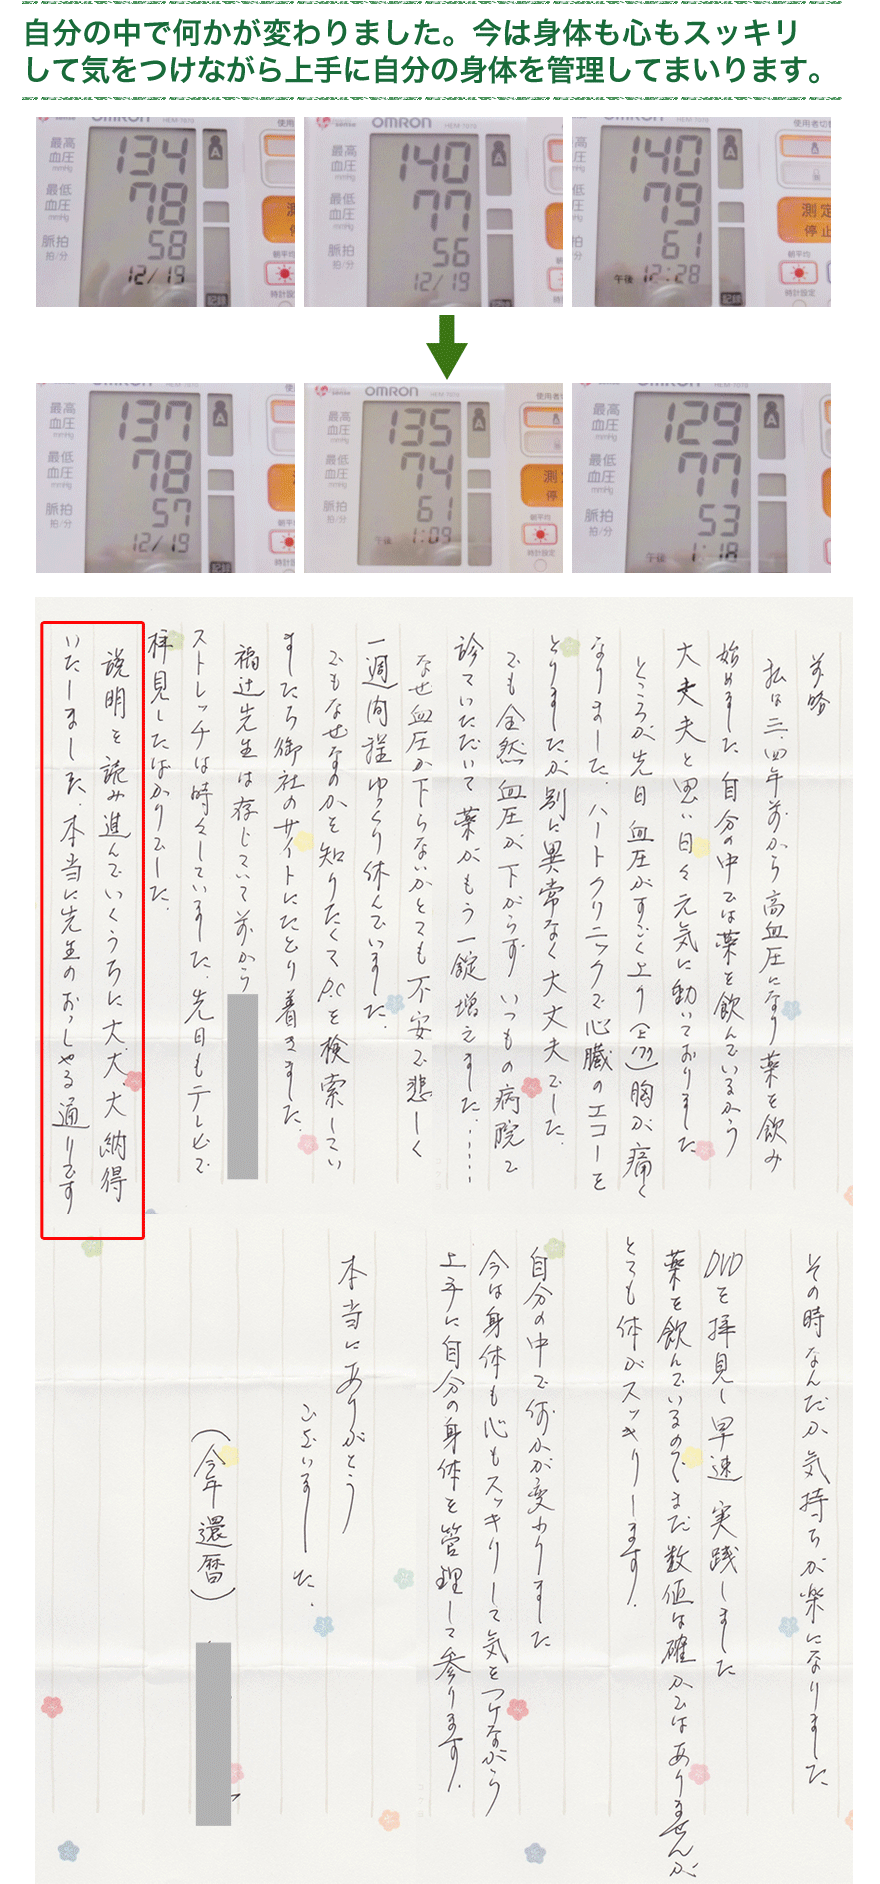 自分の中で何かが変わりました。今は身体も心もスッキリ
して気をつけながら上手に自分の身体を管理してまいります。
最高
血圧
mmHg
134
最低
血圧
mmHg
78
脈拍
拍/分
58
12/19
A
記録
使用
測
停
朝平均
時計設定
OMRON
HEM-7070
最高
血圧
mmHg
140
最低
血圧
mmHg
77
脈拍
拍/分
56
12/19
A
使用者切
高
圧
mmHg
140
低
圧
mmHg
79
拍
拍/分
61
午後 12:28
A
記録
測定
停止
朝平均
時計設定
OMRON
HEM-7070
最高
血圧
mmHg
137
最低
血圧
mmHg
78
脈拍
拍/分
57
12/19
A
記録
使
測
停
朝平均
時計設定
OMRON
HEM-7070
最高
血圧
mmHg
135
最低
血圧
mmHg
74
脈拍
拍/分
61
午後 1:09
A
使用者
測
停
朝平均
時計設定
OMRON
HEM-7070
最高
血圧
mmHg
129
最低
血圧
mmHg
77
脈拍
拍/分
53
午後 1:18
A
記録
使用
測
停
朝平均
時計設定
前略
私は三、四年前から高血圧になり薬を飲み
始めました。自分の中では薬を飲んでいるから
大丈夫と思い日々元気に動いておりました
ところが先日血圧がすごく上り(上179)胸が痛く
なりました。ハートクリニックで心臓のエコーを
とりましたが別に異常なく大丈夫でした。
でも全然血圧が下がらずいつもの病院で
診ていただいて薬がもう一錠増えました……
なぜ血圧が下らないかとても不安で悲しく
一週間程ゆっくり休んでいました。
でもなぜなのかを知りたくてP.Cを検索してい
ましたら御社のサイトにたどり着きました。
福辻先生は存じていて前から
ストレッチは時々していました。先日もテレビで
拝見したばかりでした。
説明を読み進んでいくうちに大、大、大納得
いたしました。本当に先生のおっしゃる通りです
その時なんだか気持ちが楽になりました
DVDを拝見し早速実践しました
薬を飲んでいるのでまだ数値は確かではありませんが
とても体がスッキリします。
自分の中で何かが変わりました
今は身体も心もスッキリして気をつけながら
上手に自分の身体を管理して参ります。
本当にありがとう
ございました。
(今年還暦)